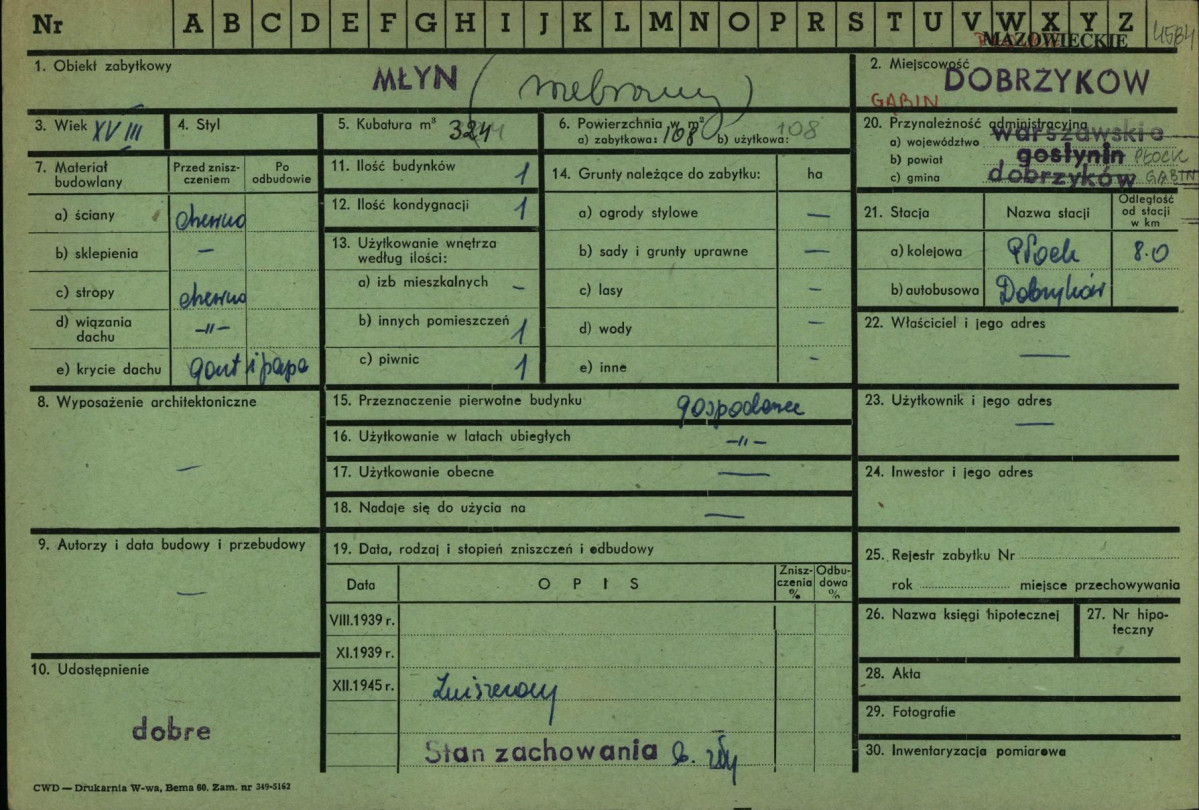 Nr A B C D E F G H I J K L M N O P R S T U V W X Y Z
MAZOWIECKIE
4584
1. Obiekt zabytkowy
MŁYN
2. Miejscowość
DOBRZYKOW
GĄBIN
3. Wiek XVIII
4. Styl
5. Kubatura m³ 324
6. Powierzchnia w m²
a) zabytkowa: 108 b) użytkowa: 108
20. Przynależność administracyjna
a) województwo warszawskie
b) powiat gostynin PŁOCK
c) gmina dobrzyków GĄBIN
7. Materiał budowlany
Przed zniszczeniem
Po odbudowie
a) ściany drewno
b) sklepienia –
c) stropy drewno
d) wiązania dachu –„–
e) krycie dachu gont i papa
11. Ilość budynków 1
12. Ilość kondygnacji 1
13. Użytkowanie wnętrza
według ilości:
a) izb mieszkalnych –
b) innych pomieszczeń 1
c) piwnic 1
14. Grunty należące do zabytku: ha
a) ogrody stylowe –
b) sady i grunty uprawne –
c) lasy –
d) wody –
e) inne -
21. Stacja
Nazwa stacji
Odległość
od stacji
w km
a) kolejowa Płock 8.0
b) autobusowa Dobrzyków
22. Właściciel i jego adres
—
8. Wyposażenie architektoniczne
—
15. Przeznaczenie pierwotne budynku gospodarcze
16. Użytkowanie w latach ubiegłych –„–
17. Użytkowanie obecne —
18. Nadaje się do użycia na —
23. Użytkownik i jego adres
—
24. Inwestor i jego adres
9. Autorzy i data budowy i przebudowy
—
19. Data, rodzaj i stopień zniszczeń i odbudowy
Data
O P I S
Zniszczenia
%
Odbudowa
%
VIII.1939 r.
XI.1939 r.
XII.1945 r. Zniszczony
Stan zachowania b. zły
25. Rejestr zabytku Nr
rok miejsce przechowywania
26. Nazwa księgi hipotecznej
27. Nr hipoteczny
10. Udostępnienie
dobre
28. Akta
29. Fotografie
30. Inwentaryzacja pomiarowa
CWD — Drukarnia W-wa, Bema 60. Zam. nr 349-5162